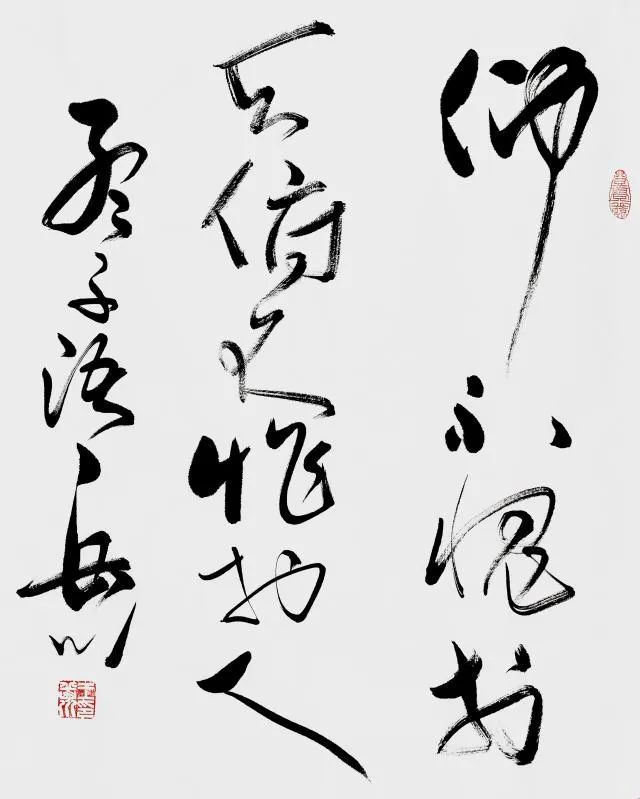 仰不愧於
天俯不怍於人
孟子語岳川